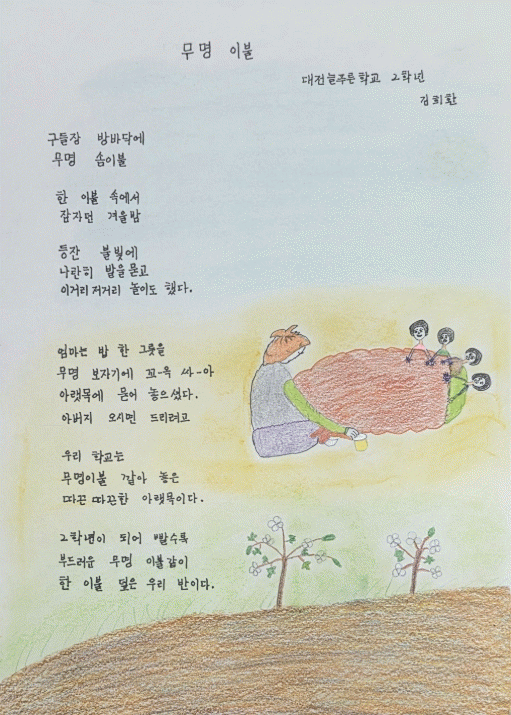 무명 이불
대전늘푸른학교 2학년
김희환
구들장 방바닥에
무명 솜이불
한 이불 속에서
잠자던 겨울밤
등잔 불빛에
나란히 발을 묻고
이거리저거리 놀이도 했다.
엄마는 밥 한 그릇을
무명 보자기에 꼬-옥 싸-아
아랫목에 묻어 놓으셨다.
아버지 오시면 드리려고
우리 학교는
무명이불 깔아 놓은
따끈따끈한 아랫목이다.
2학년이 되어 빨수록
부드러운 무명 이불같이
한 이불 덮은 우리 반이다.